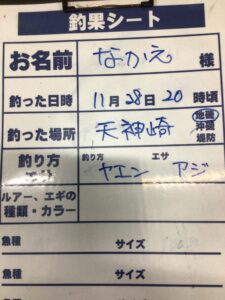 釣果シート
お名前 なかえ 様
釣った日時 11月28日20時頃
釣った場所 天神崎 地磯 沖磯 堤防
釣り方 釣り方 ヤエン エサ アジ
ルアー、エギの
種類・カラー
魚種 サイズ
魚種 サイズ